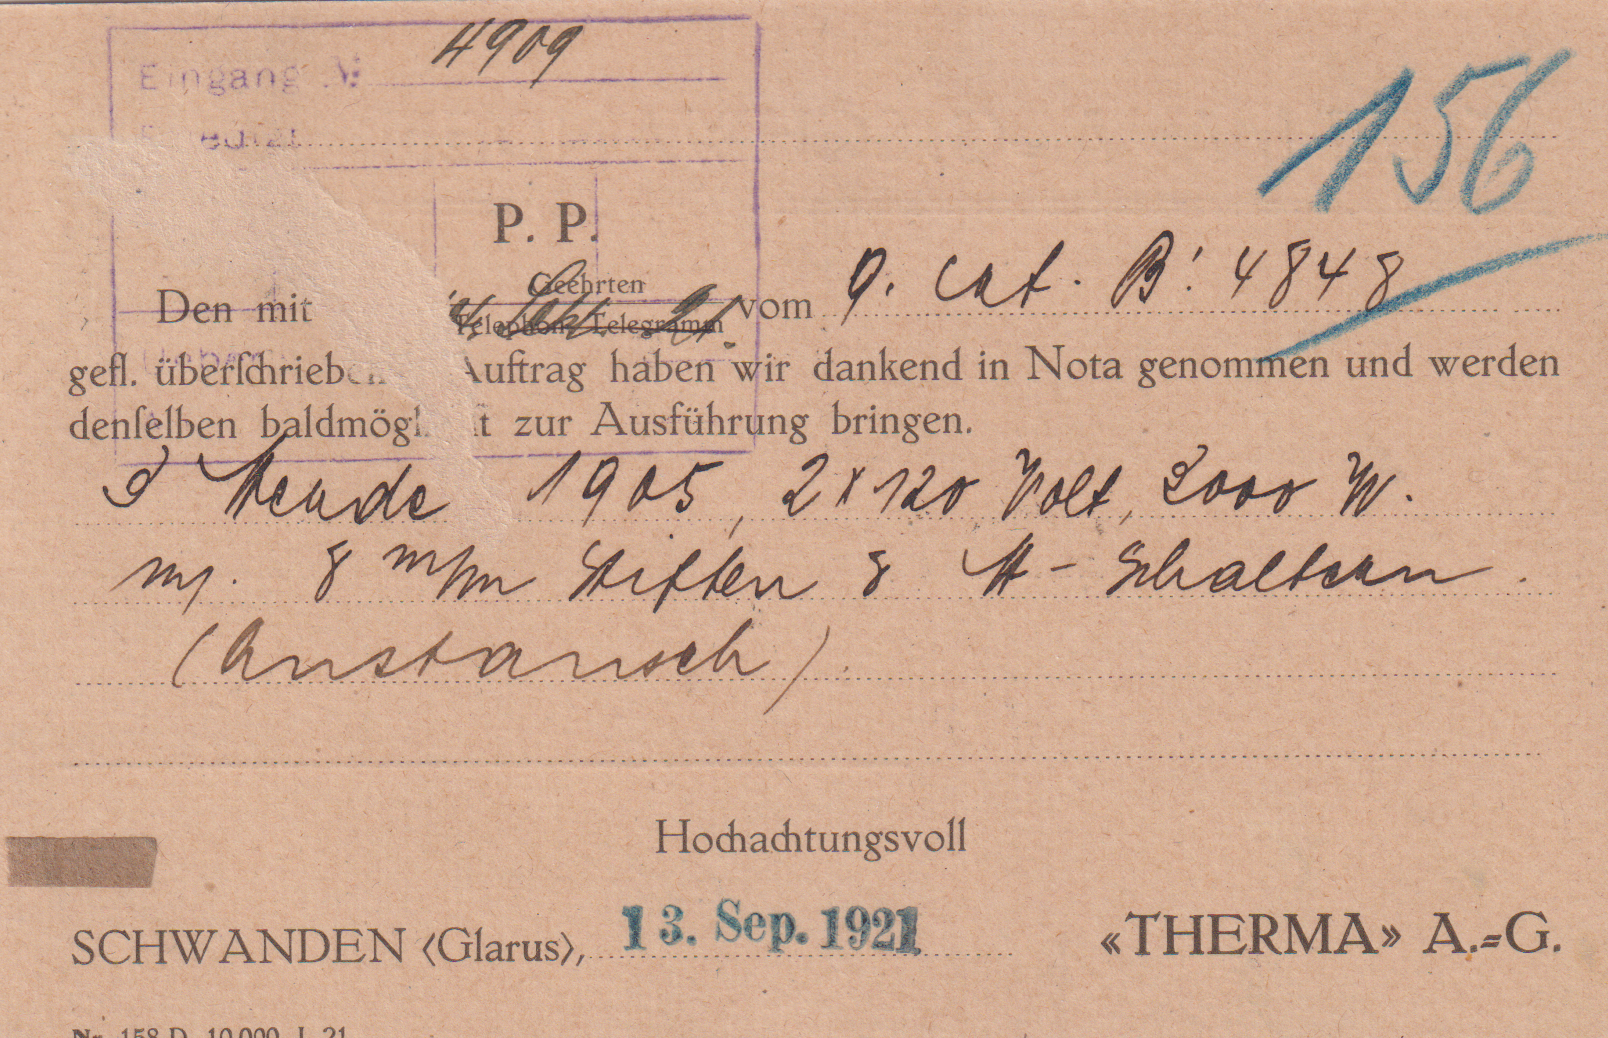 Eingang № 4909
156
P. P.
Geehrten
Den mit vom 9. cat. B: 4848
Telephon Telegramm
gefl. überschrieben Auftrag haben wir dankend in Nota genommen und werden
denselben baldmögl t zur Ausführung bringen.
1905, 2 x 120 Volt, 3000 W.
8 m/m Stiften & A - Schaltern.
(Austausch).
Hochachtungsvoll
SCHWANDEN ‹Glarus›, 13. Sep. 1921 «THERMA» A.=G.
Nr. 158 D. 10.000. I. 21